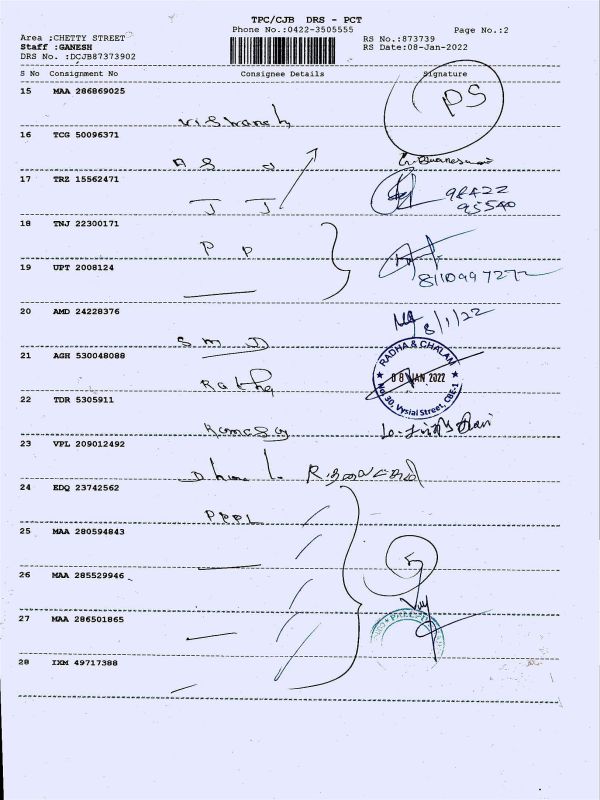 TPC/CJB DRS - PCT
Phone No.:0422-3505555 Page No.:2
Area :CHETTY STREET RS No.:873739
Staff :GANESH RS Date:08-Jan-2022
DRS No. :DCJB87373902
S No Consignment No Consignee Details Signature
15 MAA 286869025
PS
16 TCG 50096371
A S
17 TRZ 15562471
J J 98422
95540
18 TNJ 22300171
P P
19 UPT 2008124
8110997272
20 AMD 24228376
8/1/22
S M D
21 AGH 530048088
RADHA & CHALAM
08 JAN 2022
No 30, Vysial Street, CBE-1
22 TDR 5305911
23 VPL 209012492
24 EDQ 23742562
PPPL
25 MAA 280594843
26 MAA 285529946
27 MAA 286501865
28 IXM 49717388